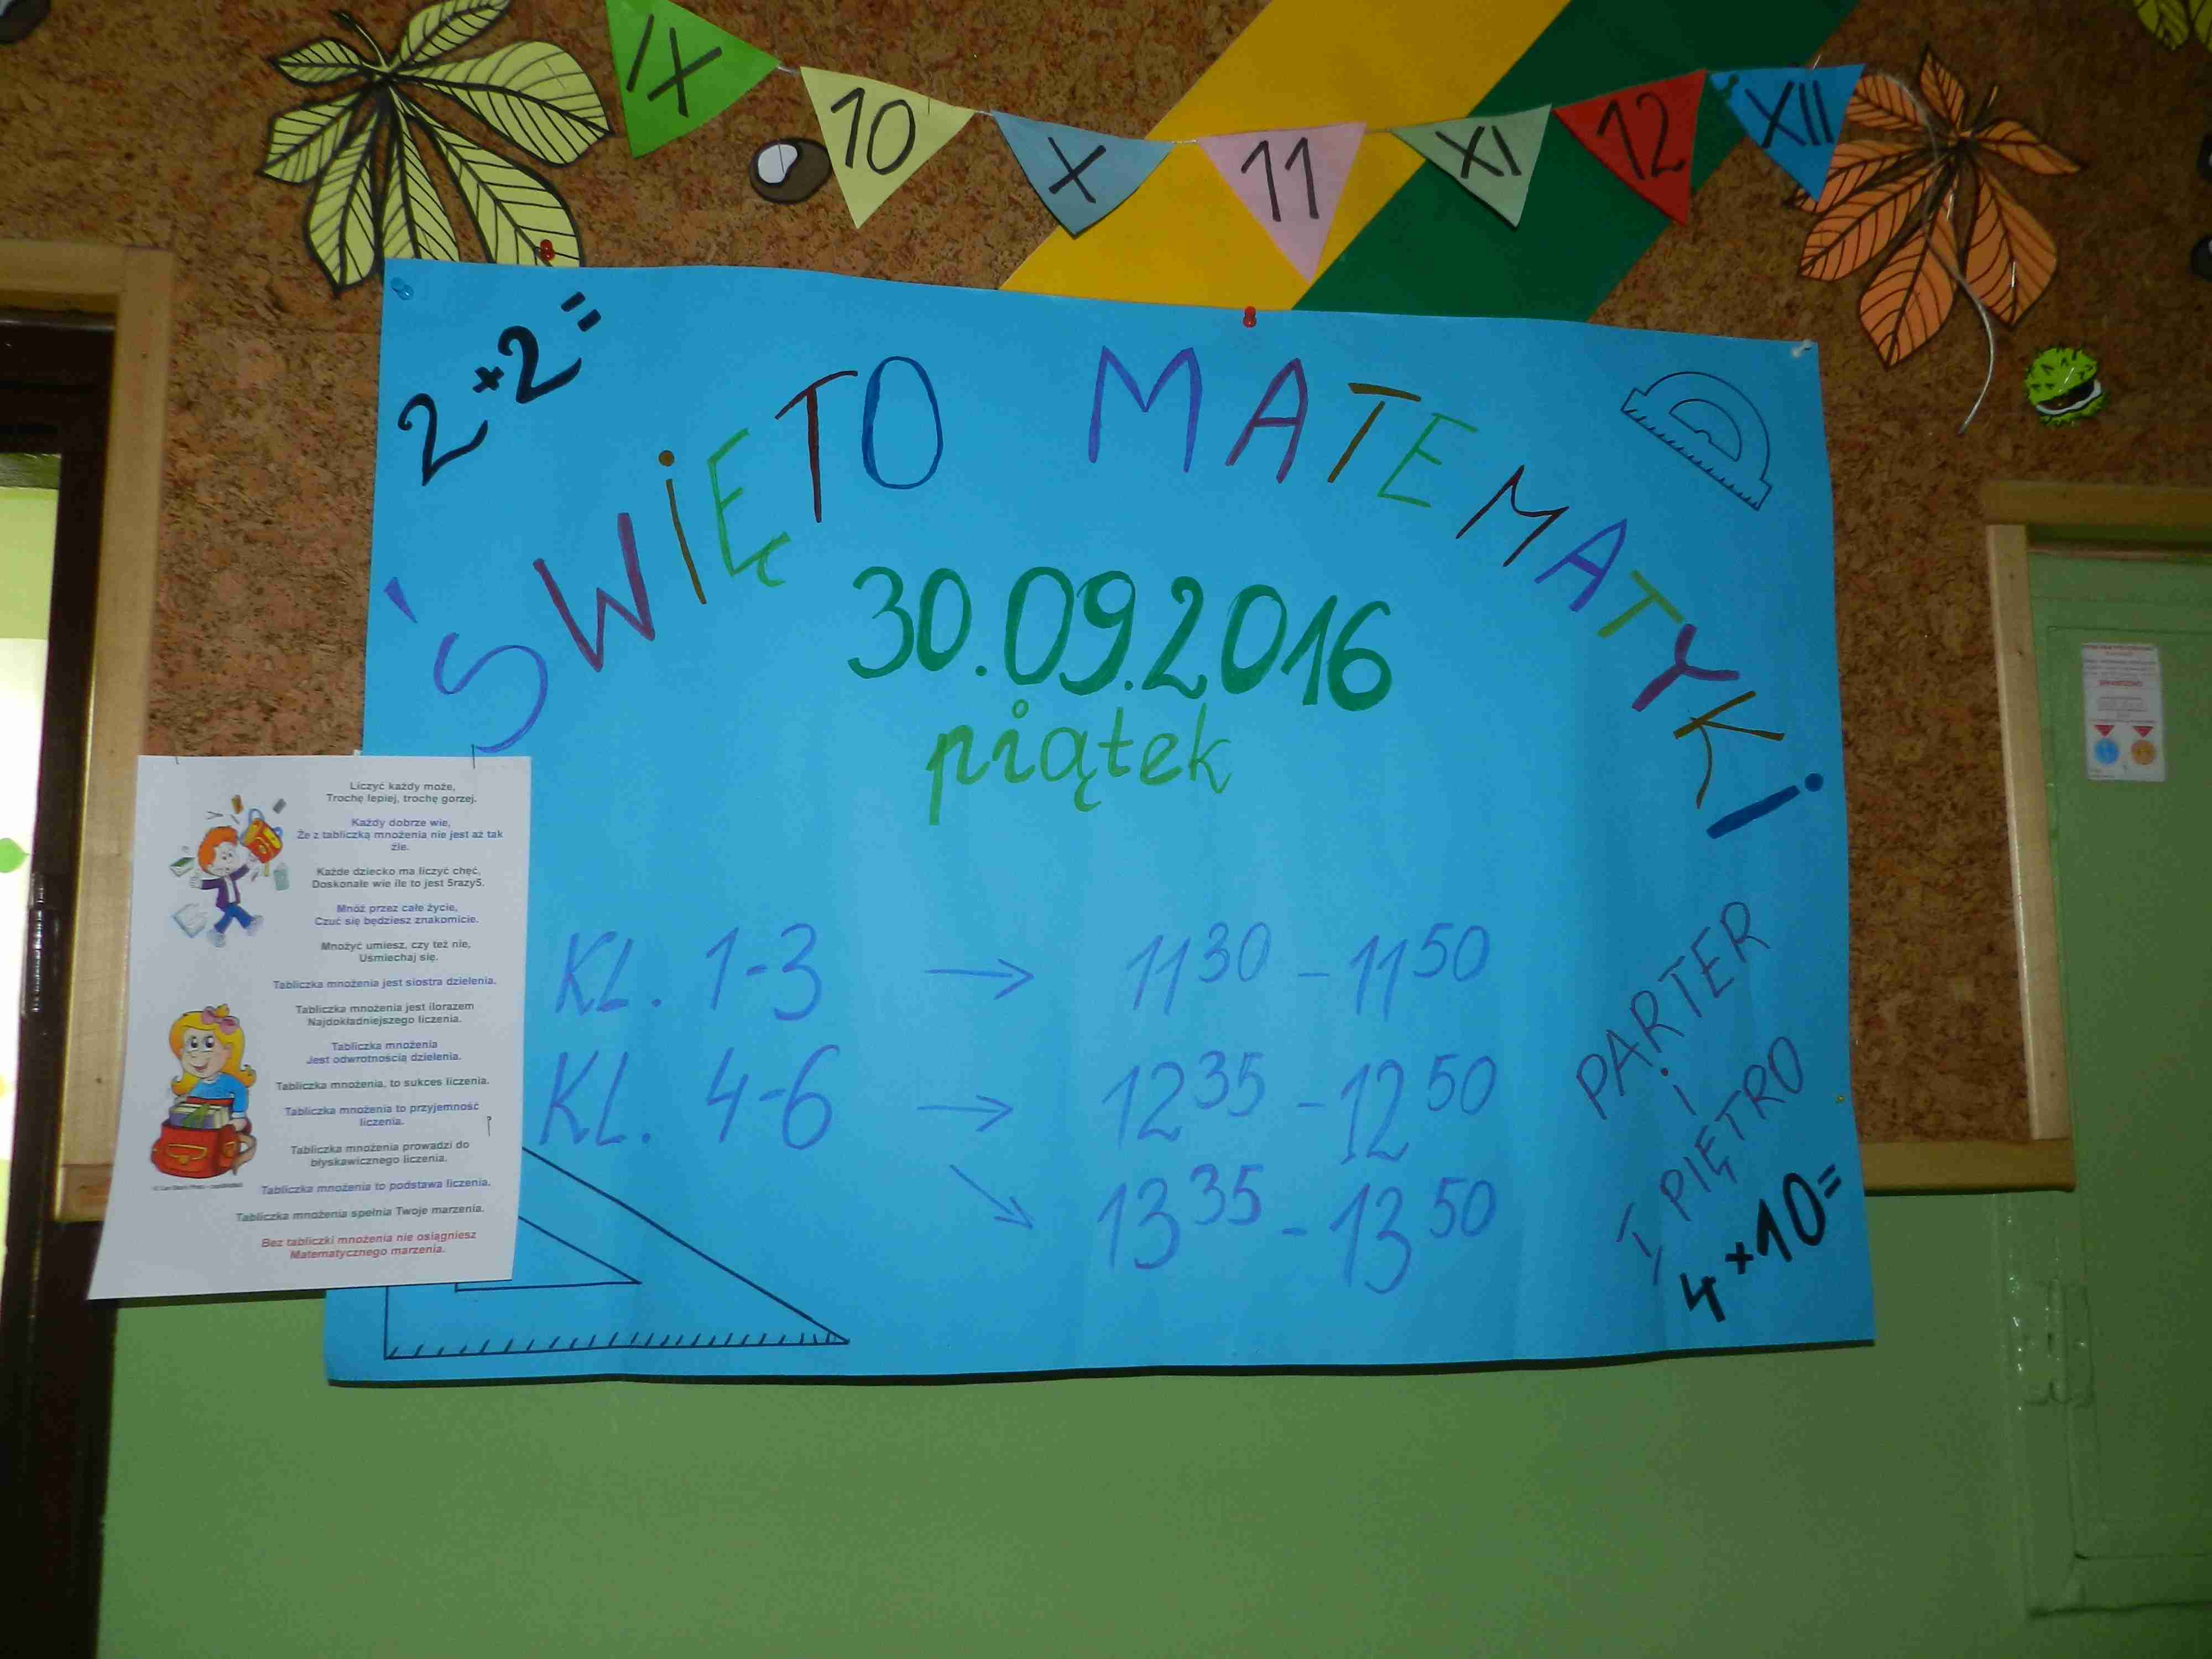 IX 10 X 11 XI 12 XII
2+2=
ŚWIĘTO MATEMATYKI
30.09.2016
piątek
KL. 1-3 → 11 30 - 11 50
KL. 4-6 → 12 35 - 12 50
13 35 - 13 50
PARTER
i
I PIĘTRO
4+10=
Liczyć każdy może,
Trochę lepiej, trochę gorzej.
Każdy dobrze wie,
Że z tabliczką mnożenia nie jest aż tak
źle.
Każde dziecko ma liczyć chęć,
Doskonale wie ile to jest 5razy5.
Mnóż przez całe życie,
Czuć się będziesz znakomicie.
Mnożyć umiesz, czy też nie,
Uśmiechaj się.
Tabliczka mnożenia jest siostra dzielenia.
Tabliczka mnożenia jest ilorazem
Najdokładniejszego liczenia.
Tabliczka mnożenia
Jest odwrotnością dzielenia.
Tabliczka mnożenia, to sukces liczenia.
Tabliczka mnożenia to przyjemność
liczenia.
Tabliczka mnożenia prowadzi do
błyskawicznego liczenia.
Tabliczka mnożenia to podstawa liczenia.
Tabliczka mnożenia spełnia Twoje marzenia.
Bez tabliczki mnożenia nie osiągniesz
Matematycznego marzenia.